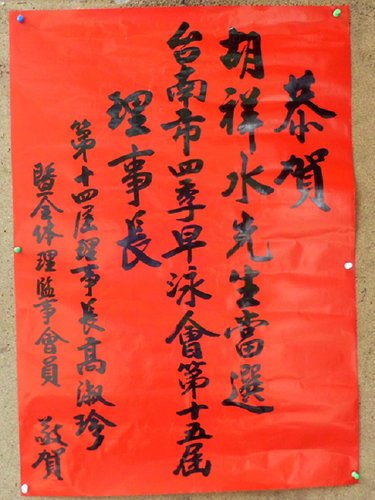 恭賀
胡祥水先生當選
台南市四季早泳會第十五屆
理事長
第十四屆理事長高淑珍
暨全体理監事會員 敬賀